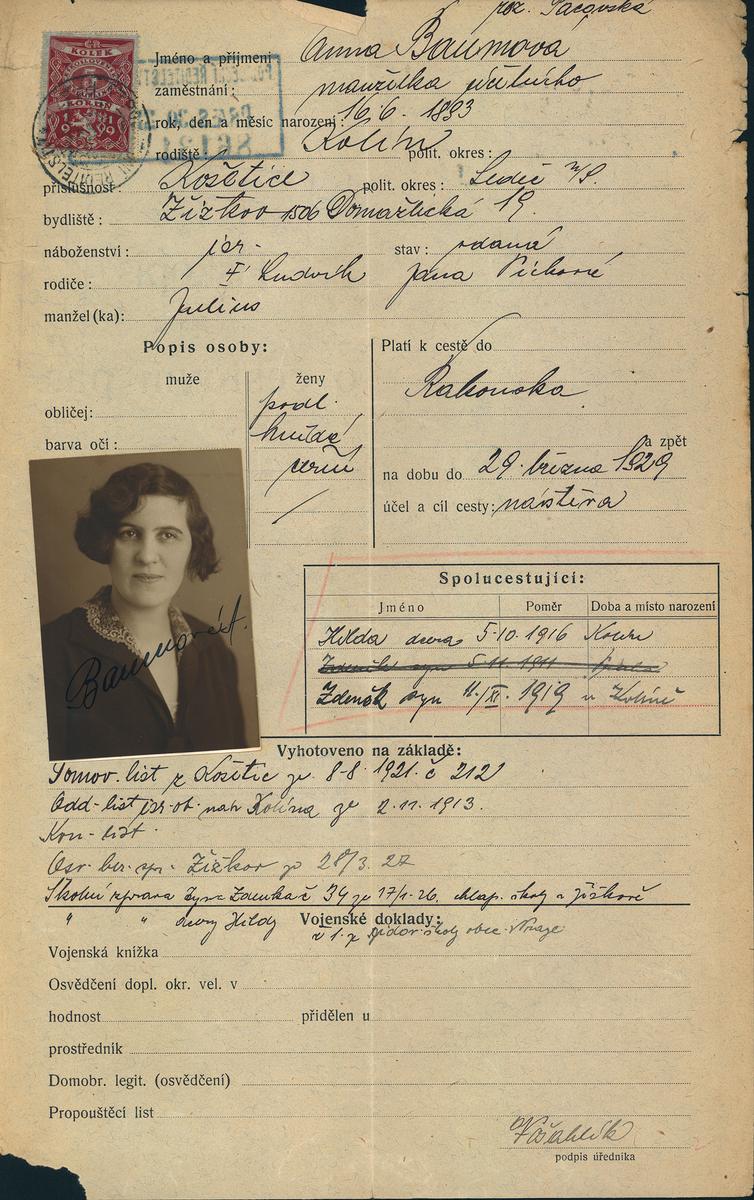 roz. Pacovská
KOLEK
Jméno a příjmení Anna Baumová
zaměstnání: manželka
rok, den a měsíc narození: 16. 6. 1893
rodiště: Kolín polit. okres:
příslušnost Košetice polit. okres: Ledeč n/S.
bydliště: Žižkov 1506 Domažlická 19.
náboženství: isr. stav: vdaná
rodiče: Ludvík Jana
manžel(ka): Julius
Popis osoby:
muže ženy
obličej: podl.
barva očí: hnědé
černé
/
Platí k cestě do
Rakouska
a zpět
na dobu do 29. března 1929
účel a cíl cesty: návštěva
Baumová A.
Spolucestující:
Jméno Poměr Doba a místo narození
Hilda dcera 5.10.1916 Kolín
Zdeněk syn 5.11.1911
Zdeněk syn 11./XI. 1919 v Kolíně
Vyhotoveno na základě:
Domov. list z Košetic ze 8-8. 1921. č 212
Odd-list isr. ob. nab. Kolína ze 2.11.1913.
Kon-list.
Osv. ber. spr. Žižkov ze 28/3. 27
Školní zpráva syna Zdeňka č 34 ze 17/1-26. chlap. školy v Žižkově
" " dcery Hildy
č 1. z školy obec.
Vojenské doklady:
Vojenská knížka
Osvědčení dopl. okr. vel. v
hodnost přidělen u
prostředník
Domobr. legit. (osvědčení)
Propouštěcí list
podpis úředníka